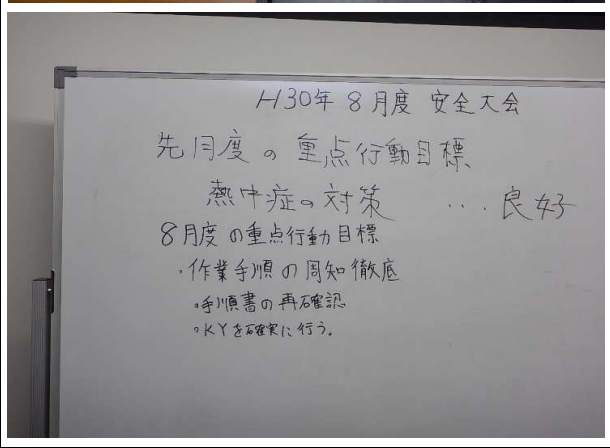 H30年 8月度 安全大会
先月度の重点行動目標
熱中症の対策 ... 良好
8月度の重点行動目標
・作業手順の周知徹底
・手順書の再確認
・KYを確実に行う。